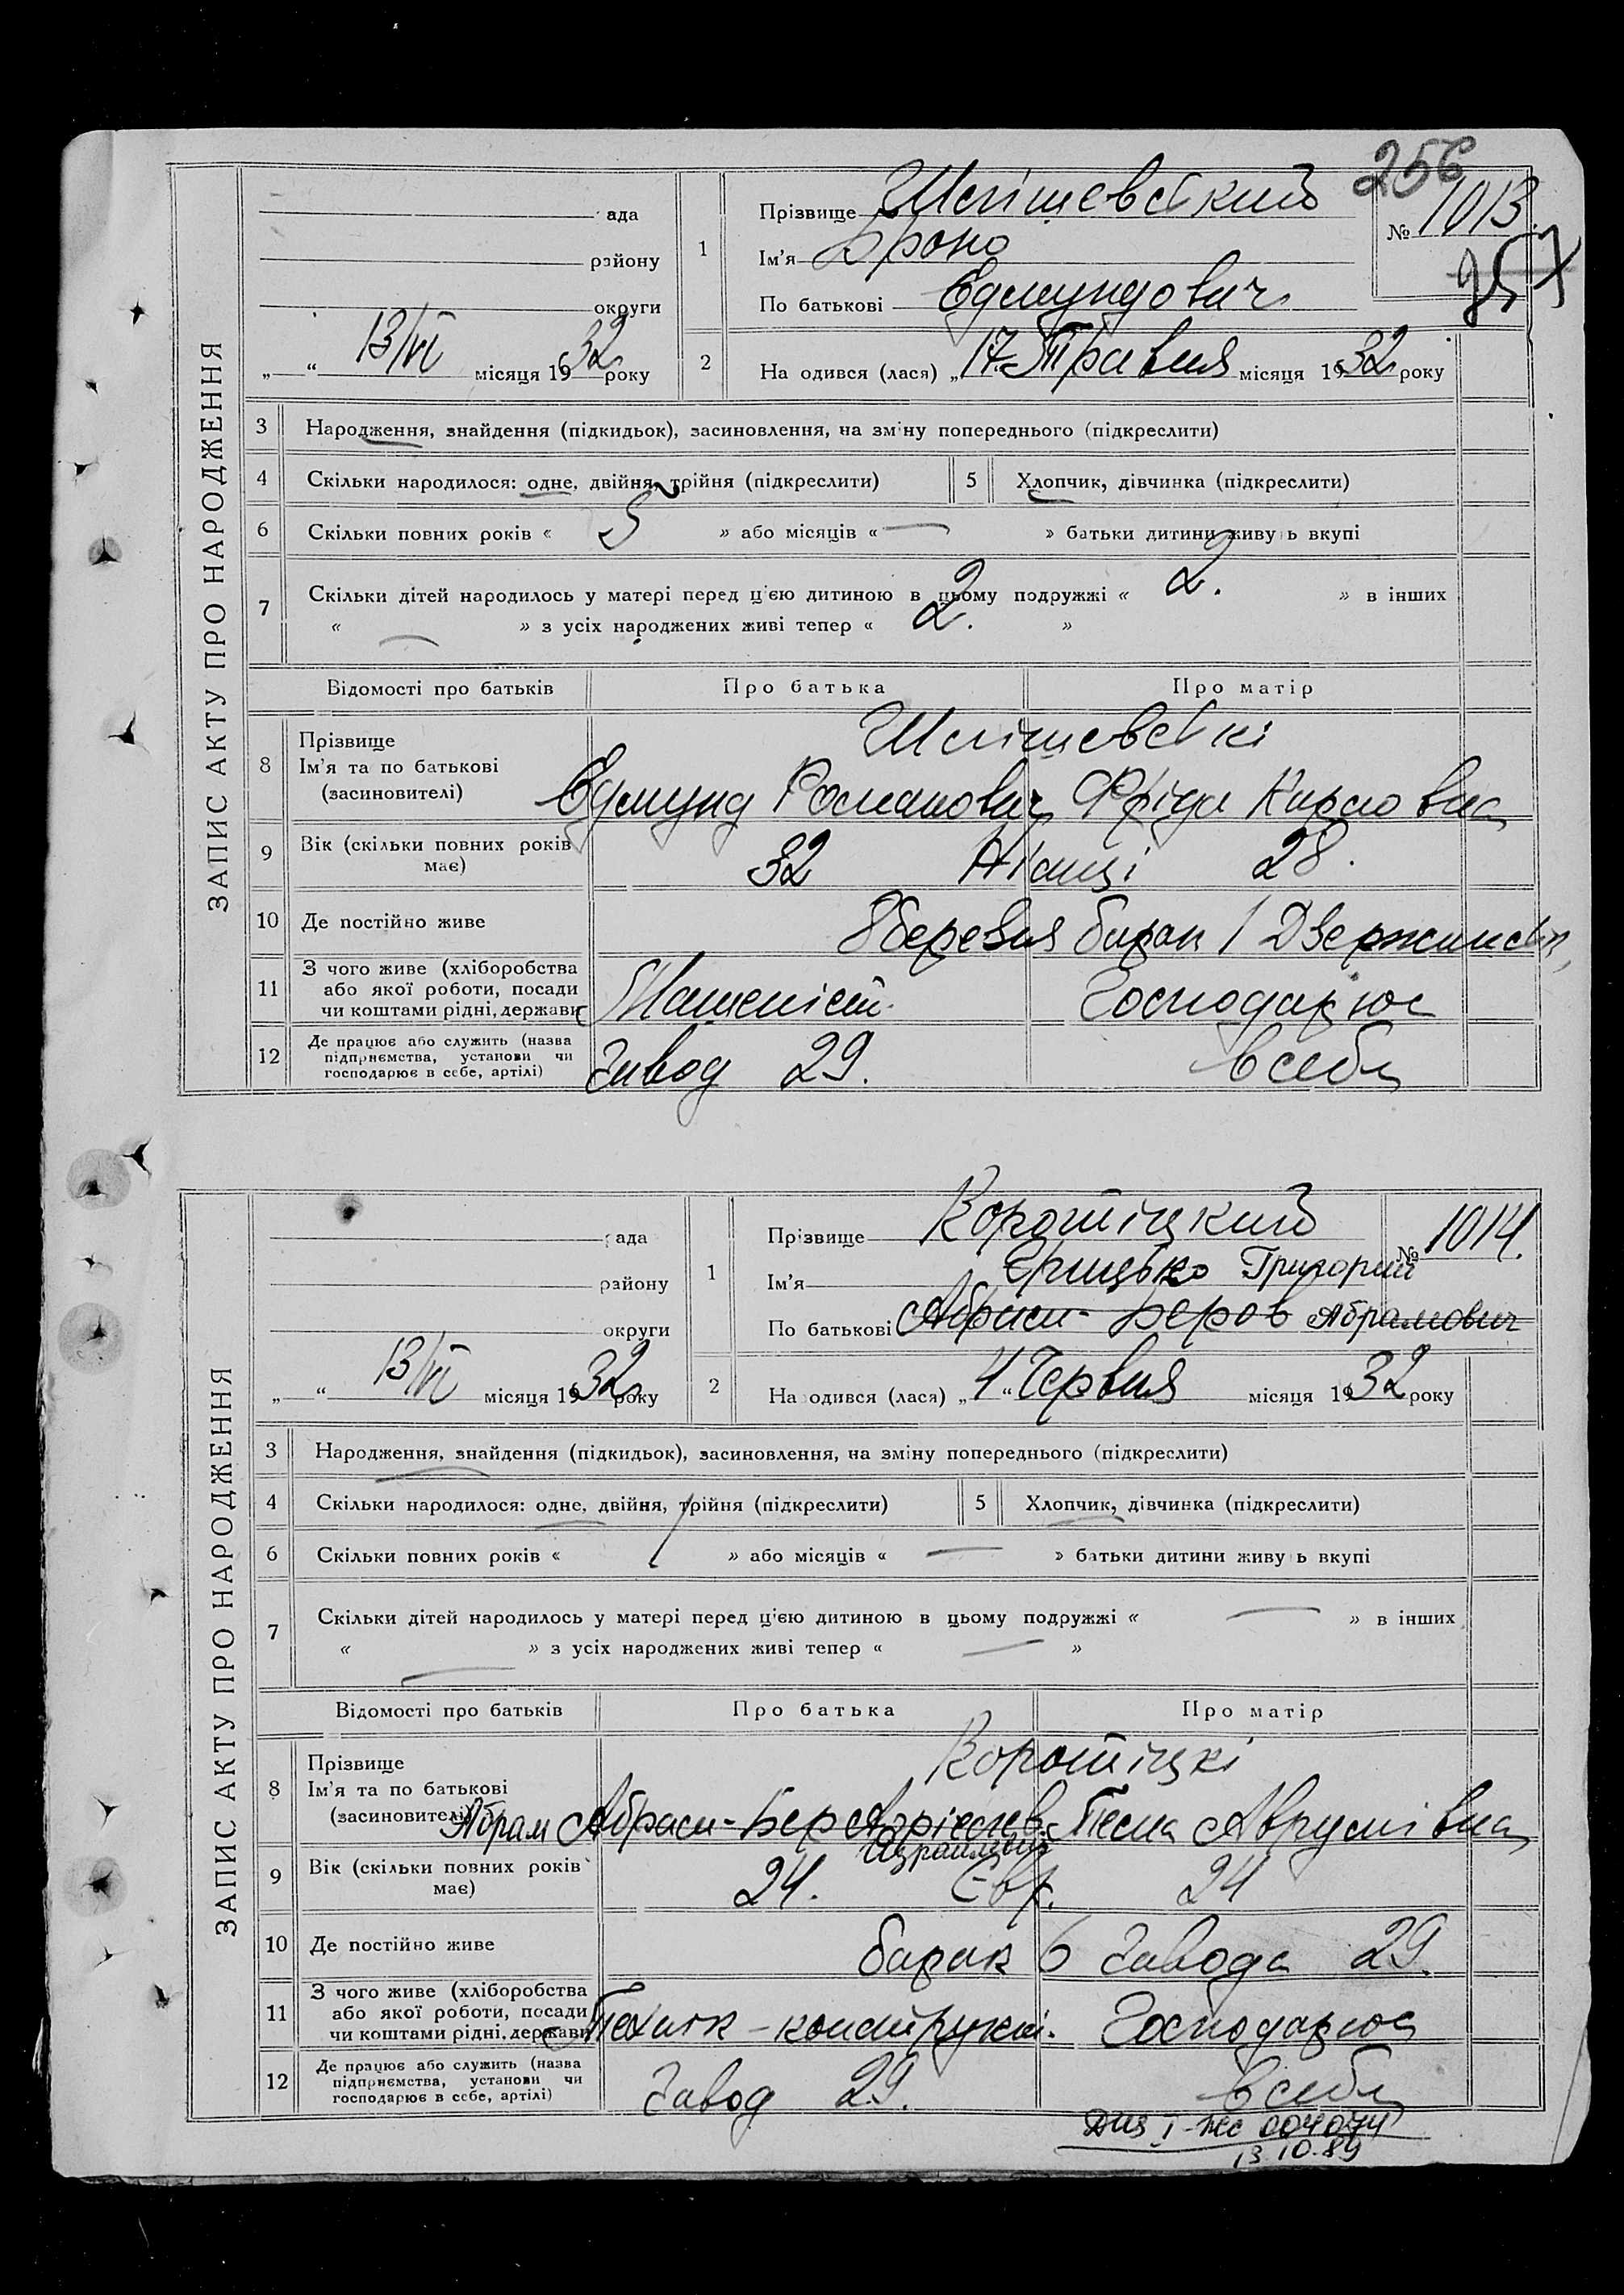 256
ЗАПИС АКТУ ПРО НАРОДЖЕННЯ
ада
району
округи
„ “ 13/VI місяця 1932 року
1
Прізвище
Ім'я Броно
По батькові Едмундович
№ 1013
257
2 На одився (лася) „17“ Травня місяця 1932 року
3 Народження, знайдення (підкидьок), засиновлення, на зміну попереднього (підкреслити)
4 Скільки народилося: одне, двійня, трійня (підкреслити) 5 Хлопчик, дівчинка (підкреслити)
6 Скільки повних років « 5 » або місяців « — » батьки дитини живу ь вкупі
7 Скільки дітей народилось у матері перед ц'єю дитиною в цьому подружжі « 2. » в інших
« — » з усіх народжених живі тепер « 2. »
Відомості про батьків Про батька Про матір
8 Прізвище
Ім'я та по батькові Едмунд Романович Фріда Карловна
(засновителі)
9 Вік (скільки повних років має) 32 Німці 28.
10 Де постійно живе барак 1 Дзержинськ
11 З чого живе (хліборобства або якої роботи, посади чи коштами рідні, держави Господарює
12 Де працює або служить (назва підприємства, установи чи господарює в себе, артілі) Завод 29. в себе
ЗАПИС АКТУ ПРО НАРОДЖЕННЯ
ада
району
округи
„ “ 13/VI місяця 1932 року
1
Прізвище Коротіцкий
Ім'я Грицько Григорий
По батькові Абрам-Беров Абрамович
№ 1014.
2 На одився (лася) „4“ Червня місяця 1932 року
3 Народження, знайдення (підкидьок), засиновлення, на зміну попереднього (підкреслити)
4 Скільки народилося: одне, двійня, трійня (підкреслити) 5 Хлопчик, дівчинка (підкреслити)
6 Скільки повних років « 1 » або місяців « — » батьки дитини живу ь вкупі
7 Скільки дітей народилось у матері перед ц'єю дитиною в цьому подружжі « — » в інших
« — » з усіх народжених живі тепер « — »
Відомості про батьків Про батька Про матір
8 Прізвище Коротіцкі
Ім'я та по батькові
(засиновителі) Абрам Абрам-Бер
Израилевич
9 Вік (скільки повних років має) 24. Євр. 24
10 Де постійно живе барак 6 завода 29.
11 З чого живе (хліборобства або якої роботи, посади чи коштами рідні, держави Технік-конструкт. Господарює
12 Де працює або служить (назва підприємства, установи чи господарює в себе, артілі) Завод 29. в себе
004074
13.10.89